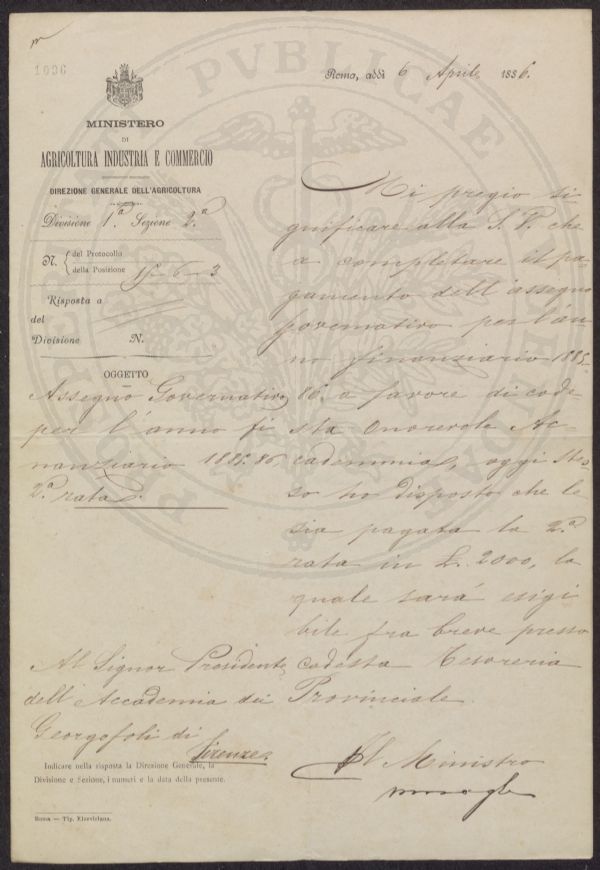 1096
Roma, addì 6 Aprile 1886.
MINISTERO
DI
AGRICOLTURA INDUSTRIA E COMMERCIO
DIREZIONE GENERALE DELL'AGRICOLTURA
Divisione 1.ª Sezione 2.ª
N. del Protocollo
della Posizione 15-6-3
Risposta a
del
Divisione N.
OGGETTO
Assegno Governativo
per l'anno fi
nanziario 1885.86.
2.ª rata.
Mi pregio si
gnificare alla S. V. che
a completare il pa-
gamento dell'assegno
governativo per l'an-
no finanziario 1885.
86. a favore di code-
sta Onorevole Ac-
cademmia, oggi stes-
so ho disposto che le
sia pagata la 2.ª
rata in L. 2000, la
quale sará esigi
bile fra breve presso
codesta Tesoreria
Provinciale.
Al Signor Presidente
dell'Accademia dei
Georgofoli di
Firenze.
Il Ministro
Indicare nella risposta la Direzione Generale, la
Divisione e Sezione, i numeri e la data della presente.
Roma — Tip. Elzeviriana.
PVBLICAE